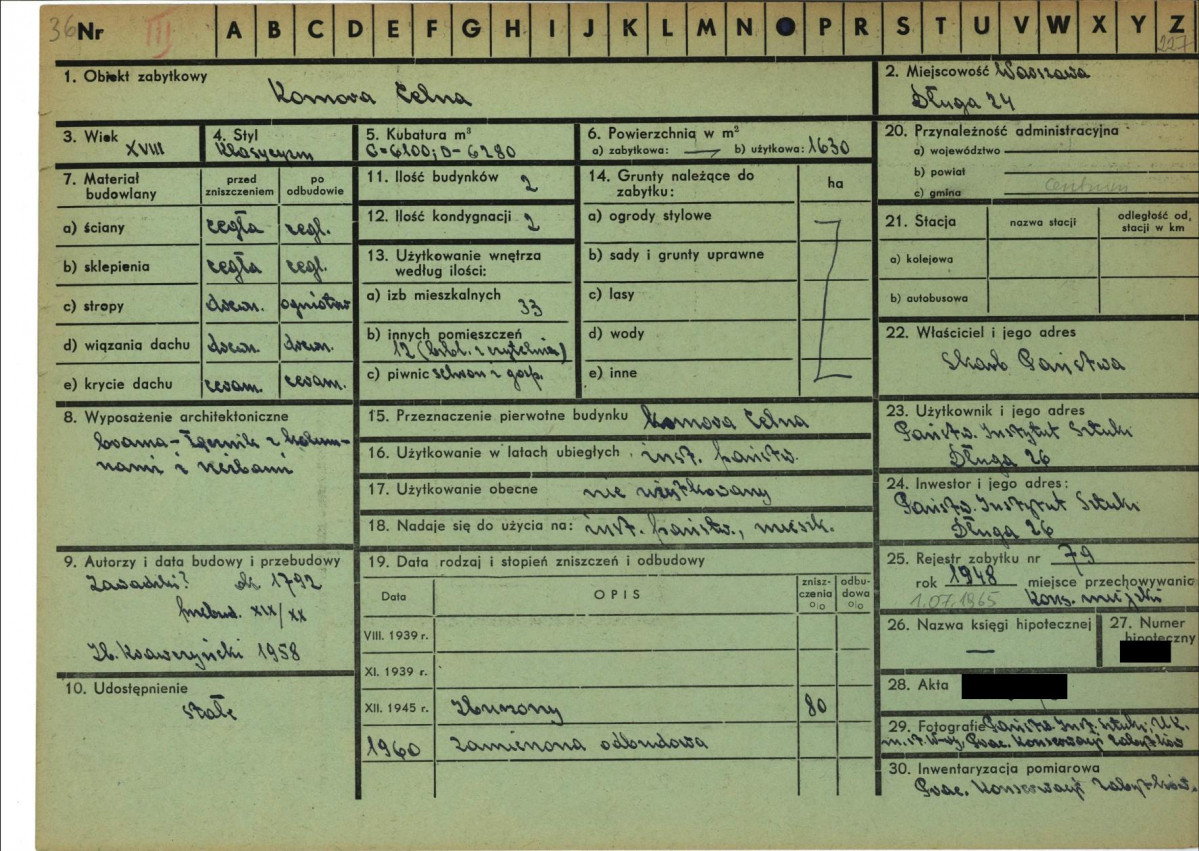 36 Nr III A B C D E F G H I J K L M N O P R S T U V W X Y Z
227
1. Obiekt zabytkowy
Komora Celna
2. Miejscowość Warszawa
Długa 24
3. Wiek
XVIII
4. Styl
Klasycyzm
5. Kubatura m³
C=6200; D-6280
6. Powierzchnia w m²
a) zabytkowa: — b) użytkowa: 1630
7. Materiał budowlany
przed zniszczeniem
po odbudowie
a) ściany cegła cegl.
b) sklepienia cegła cegl.
c) stropy drewn. ogniotrw
d) wiązania dachu drewn. drewn.
e) krycie dachu ceram. ceram.
8. Wyposażenie architektoniczne
brama - łącznik z kolum-
nami i rzeźbami
9. Autorzy i data budowy i przebudowy
Zawadzki? ok. 1792
przebud. XIX/XX
Zb. Ksawerzyński 1958
10. Udostępnienie
stałe
11. Ilość budynków 2
12. Ilość kondygnacji 2
13. Użytkowanie wnętrza
według ilości:
a) izb mieszkalnych
33
b) innych pomieszczeń
12 (bibl. z czytelnią)
c) piwnic schron i gosp.
14. Grunty należące do
zabytku:
ha
a) ogrody stylowe
b) sady i grunty uprawne
c) lasy
d) wody
e) inne
15. Przeznaczenie pierwotne budynku Komora Celna
16. Użytkowanie w latach ubiegłych inst. państw.
17. Użytkowanie obecne nie użytkowany
18. Nadaje się do użycia na: inst. państw., mieszk.
19. Data rodzaj i stopień zniszczeń i odbudowy
Data OPIS znisz-
czenia
o/o
odbu-
dowa
o/o
VIII. 1939 r.
XI. 1939 r.
XII. 1945 r. Zburzony 80
1960 zamierzona odbudowa
20. Przynależność administracyjna
a) województwo
b) powiat
c) gmina centrum
21. Stacja nazwa stacji odległość od,
stacji w km
a) kolejowa
b) autobusowa
22. Właściciel i jego adres
Skarb Państwa
23. Użytkownik i jego adres
Państw. Instytut Sztuki
Długa 26
24. Inwestor i jego adres:
Państw. Instytut Sztuki
Długa 26
25. Rejestr zabytku nr 79
rok 1948 miejsce przechowywania
1.07.1965 Kons. miejski
26. Nazwa księgi hipotecznej
—
27. Numer
hipoteczny
28. Akta
29. Fotografie Państw. Inst. Sztuki; U.K.
m. st. W-wy, Prac. Konserwacji Zabytków
30. Inwentaryzacja pomiarowa
Prac. Konserwacji Zabytków.